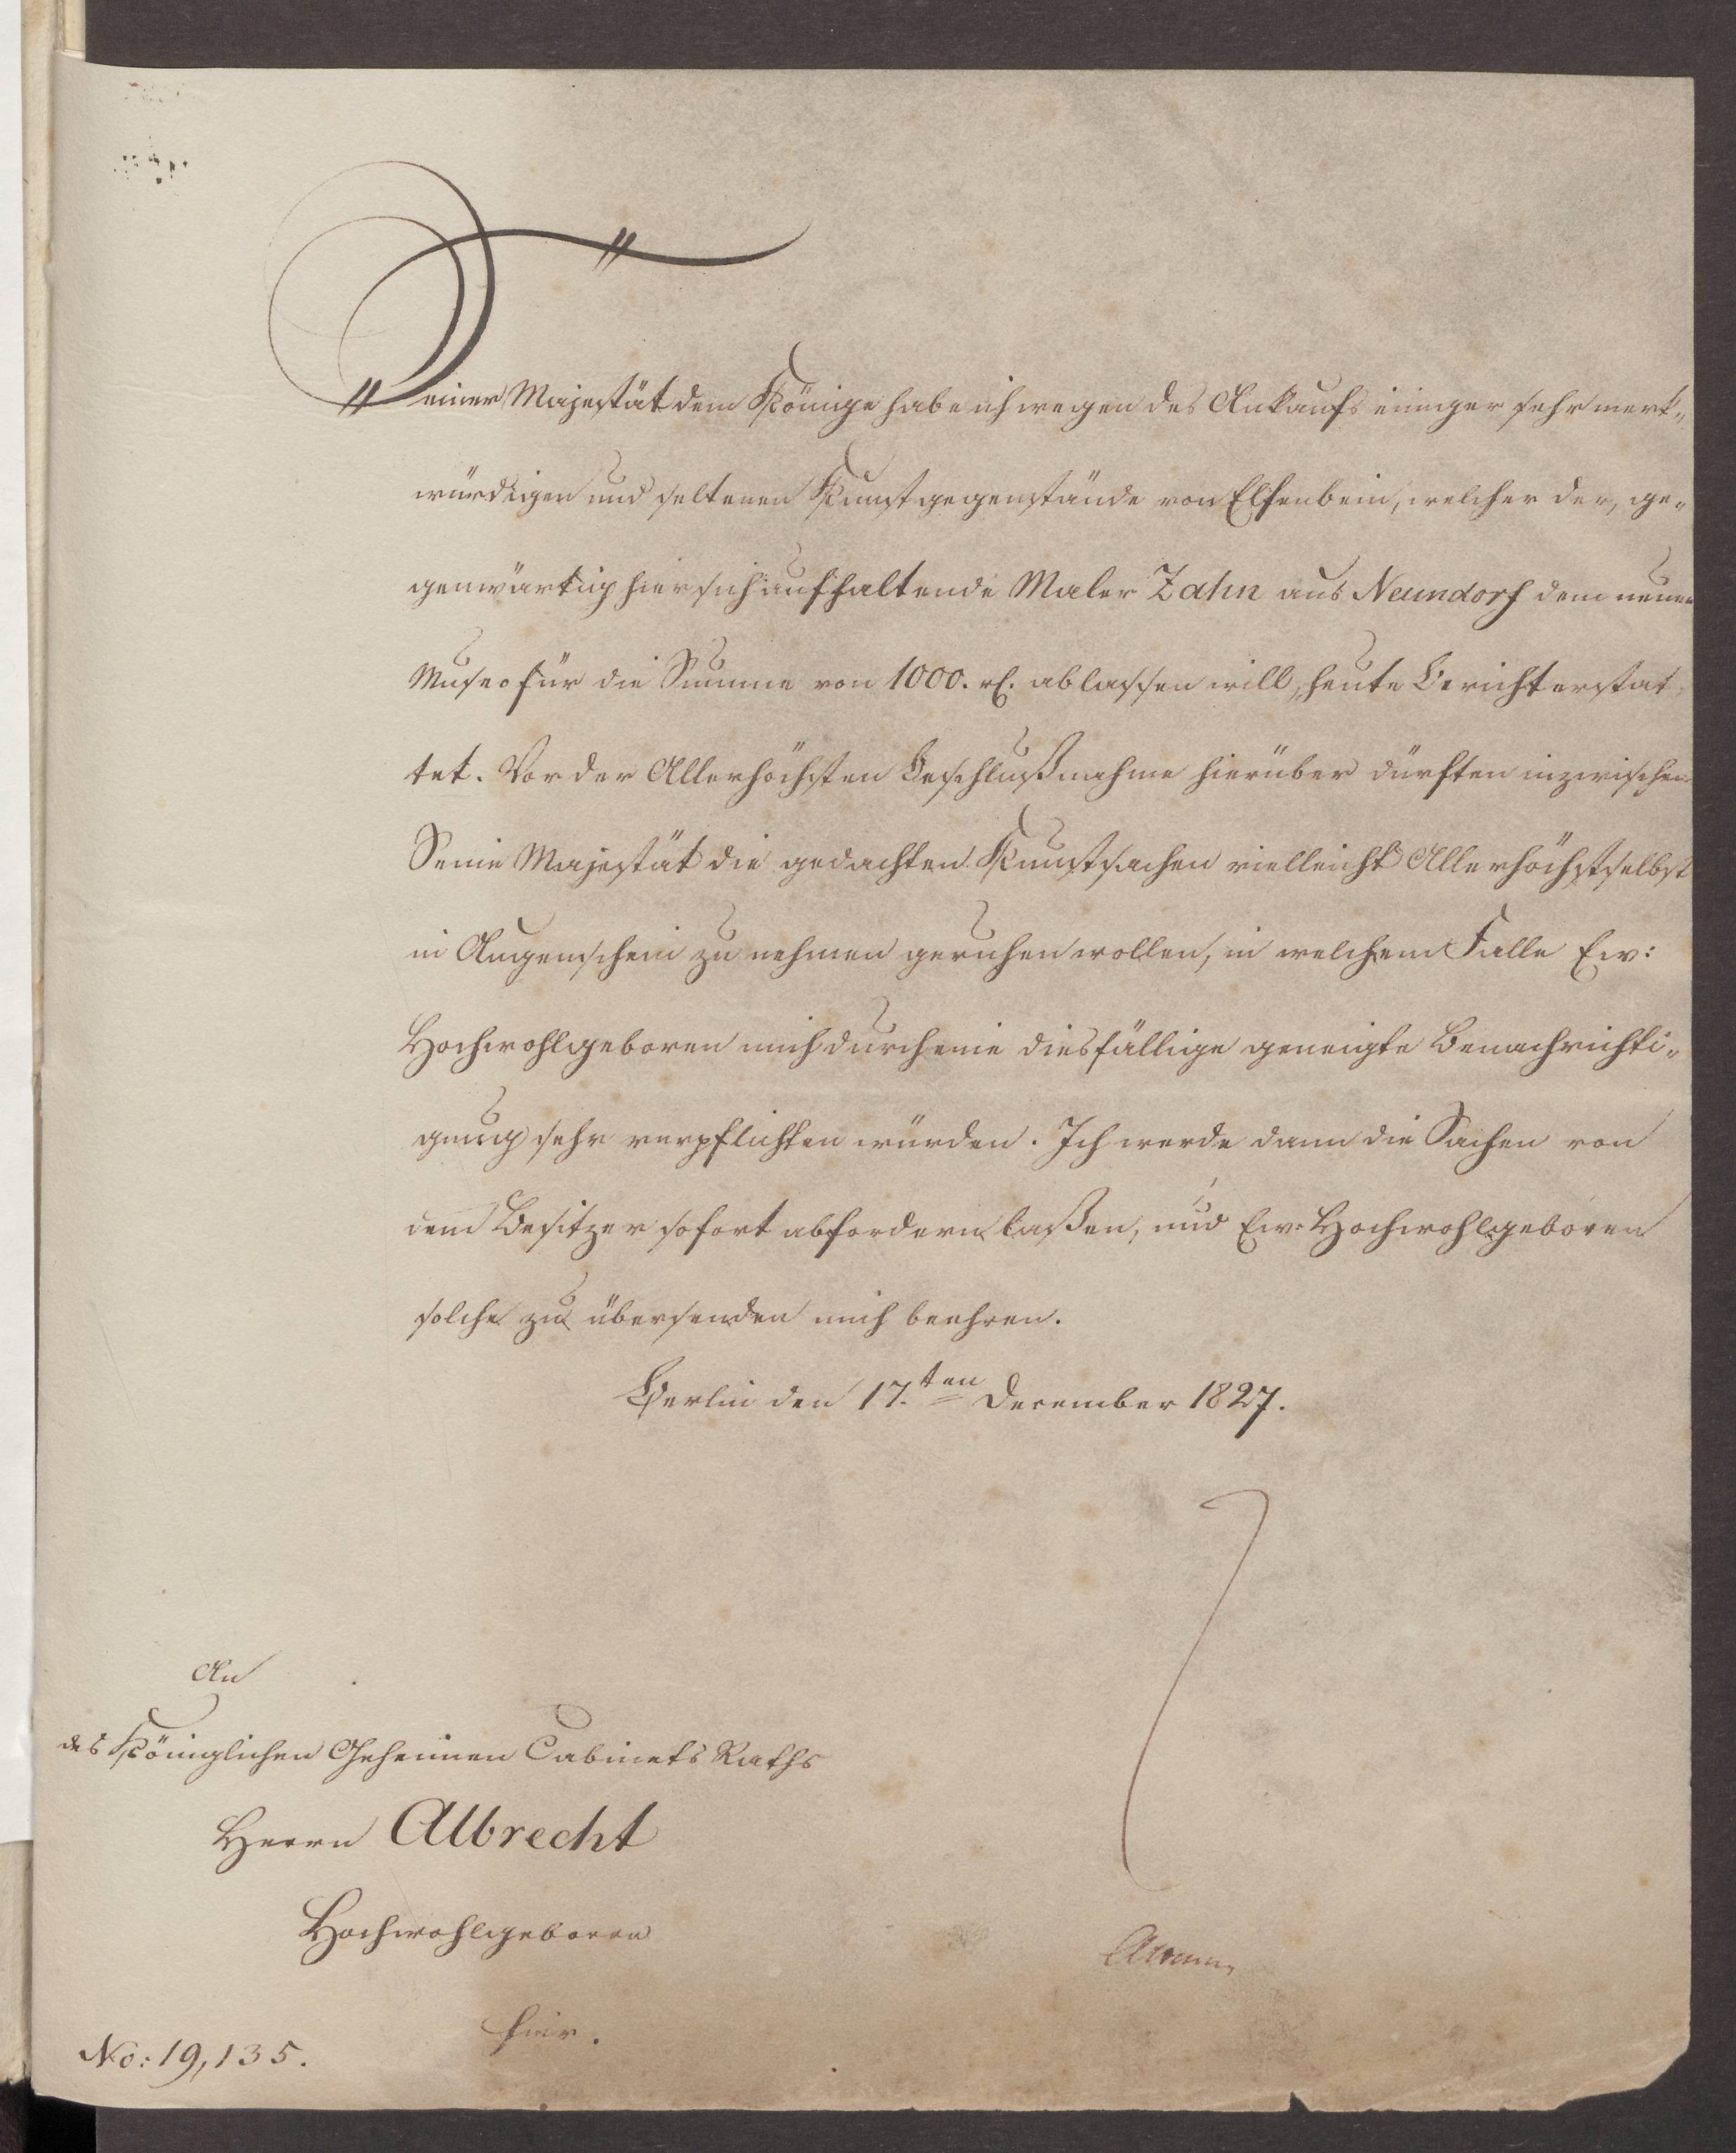 Seiner Majestät dem Könige habe ich wegen des Ankaufs einiger sehr merk-
würdigen und seltenen Kunstgegenstände von Elfenbein, welcher der, ge-
genwärtig hier sich aufhaltende Maler Zahn aus Neundorf dem neuen
Museo für die Summe von 1000. rt. ablassen will, heute Bericht erstat-
tet. Vor der Allerhöchsten Beschlußnahme hierüber dürften inzwischen
Seine Majestät die gedachten Kunstsachen vielleicht Allerhöchstselbst
in Augenschein zu nehmen geruhen wollen, in welchem Falle Ew:
Hochwohlgeboren mich durch eine diesfällige geneigte Benachrichti-
gung sehr verpflichten würden. Ich werde dann die Sachen von
dem Besitzer sofort abfordern laßen, und Ew: Hochwohlgeboren
solche zu übersenden mich beehren.
Berlin den 17.ten December 1827.
An
des Königlichen Geheimen Cabinets Raths
Herrn Albrecht
Hochwohlgeboren
hier.
No: 19,135.